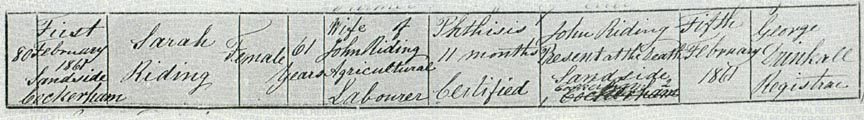 80
First
February
1861
Sandside
Cockerham
Sarah
Riding
Female
61
Years
Wife of
John Riding
Agricultural
Labourer
Phthisis
11 months
Certified
John Riding
Present at the death
Sandside
Cockerham
Fifth
February
1861
George
Registrar